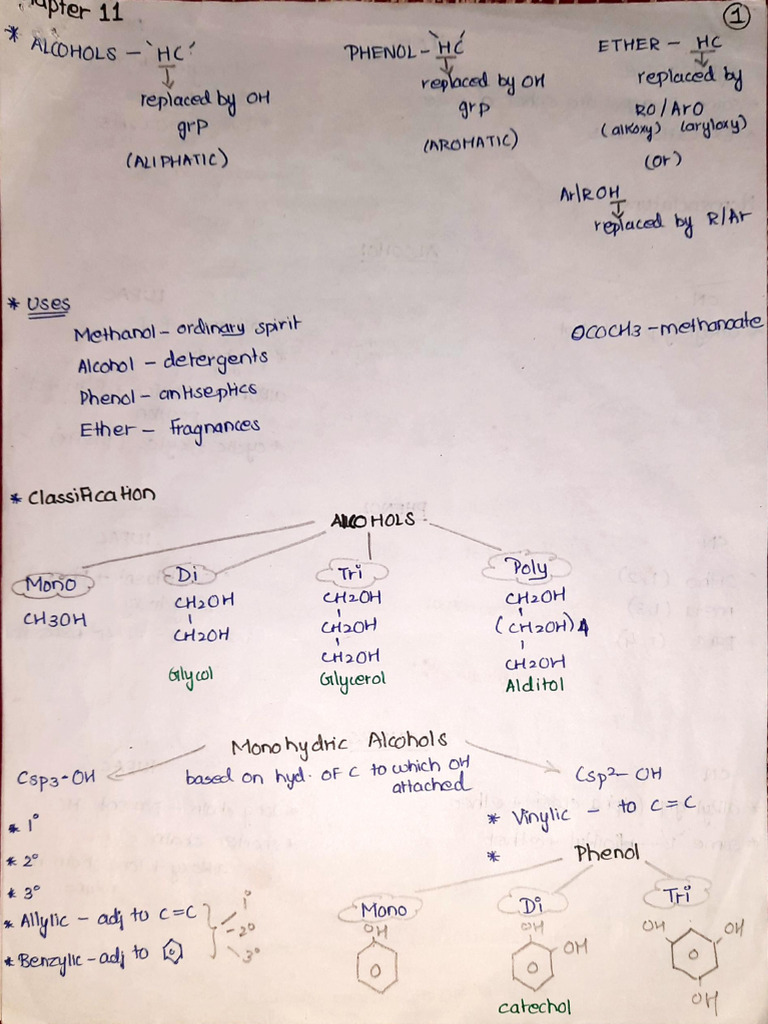 apter 11
1
* ALCOHOLS - 'HC'
replaced by OH
grp
(ALIPHATIC)
PHENOL - 'HC'
replaced by OH
grp
(AROMATIC)
ETHER - HC
replaced by
RO/ArO
(alkoxy) (aryloxy)
(or)
Ar/ROH
replaced by R/Ar
* Uses
Methanol - ordinary spirit
Alcohol - detergents
Phenol - antiseptics
Ether - Fragnances
OCOCH3 - methanoate
* Classification
ALCOHOLS
Mono
CH3OH
Di
CH2OH
CH2OH
Glycol
Tri
CH2OH
CH2OH
CH2OH
Glycerol
Poly
CH2OH
(CH2OH)4
CH2OH
Alditol
Monohydric Alcohols
based on hyd. of C to which OH
attached
Csp3-OH
* 1°
* 2°
* 3°
* Allylic - adj to C=C
* Benzylic - adj to
1°
2°
3°
Csp2-OH
* Vinylic - to C=C
* Phenol
Mono
OH
Di
OH
OH
catechol
Tri
OH
OH
OH